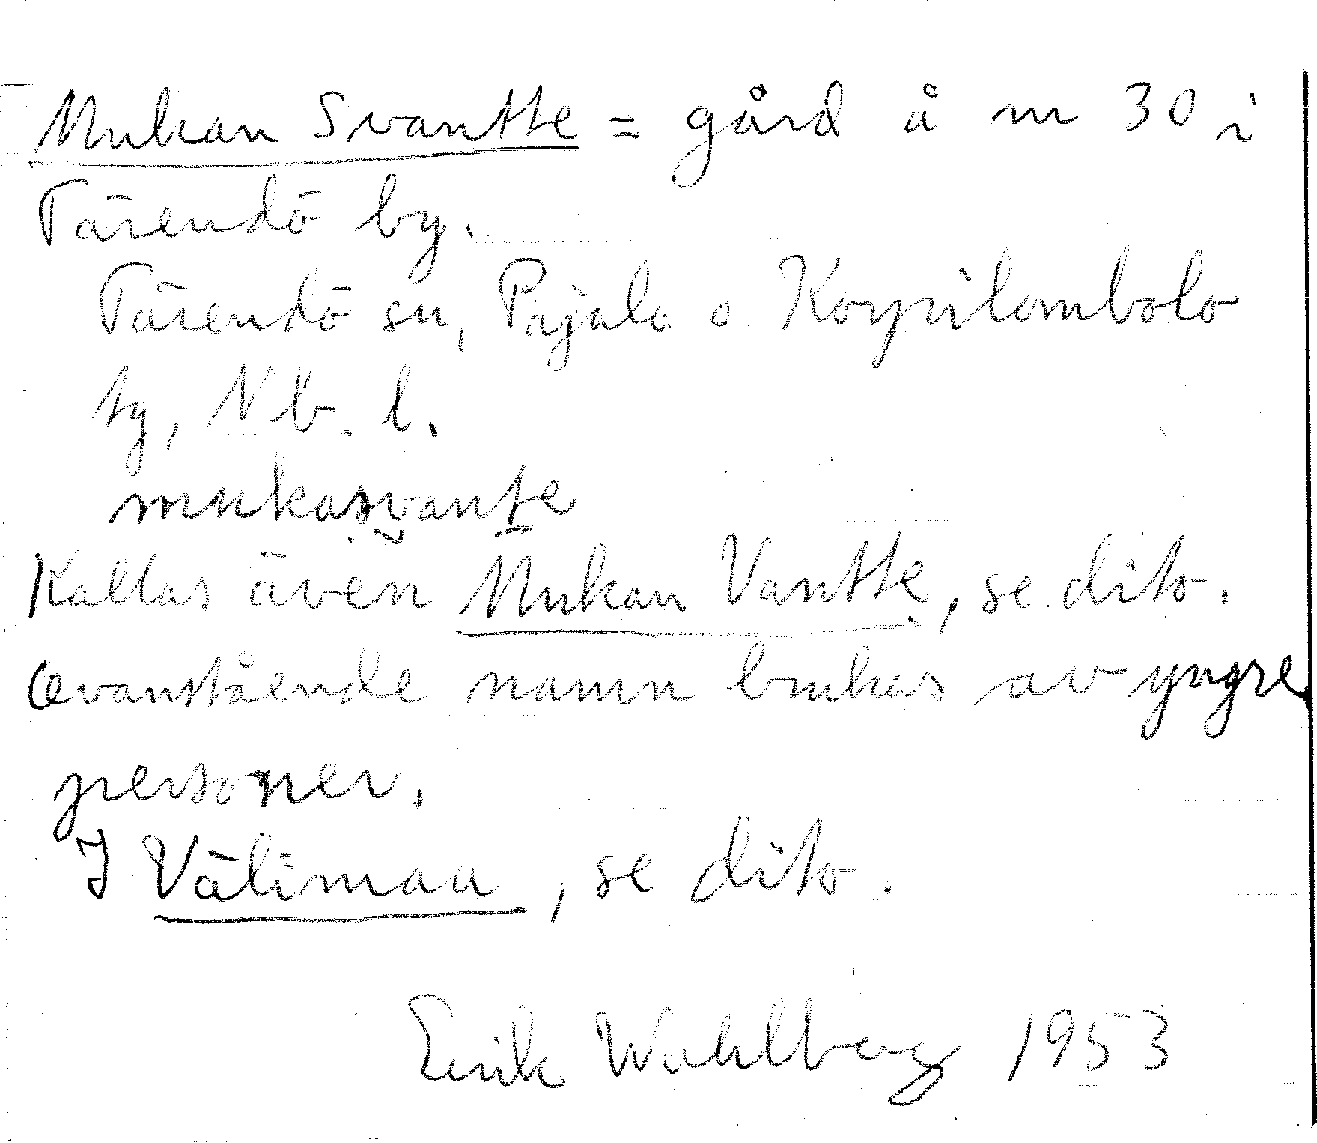 Mukan Svantte = gård å nr 30 i
Tärendö by.
Tärendö sn, Pajala o Korpilombolo
tg, Nb. l.
mukasvante
Kallas även Mukan Vantte, se dito.
Ovanstående namn brukas av yngre
personer.
I Välimaa, se dito.
Erik Wahlberg 1953